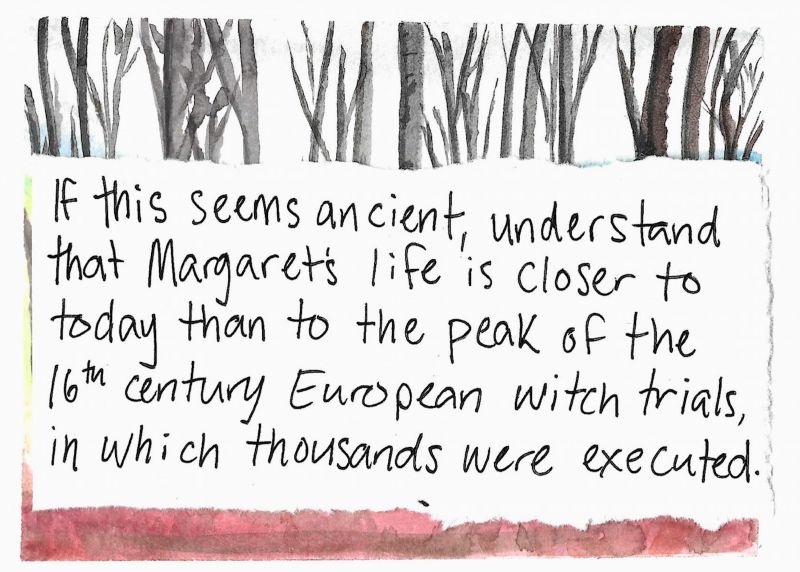 If this seems ancient, understand
that Margaret's life is closer to
today than to the peak of the
16th century European witch trials,
in which thousands were executed.